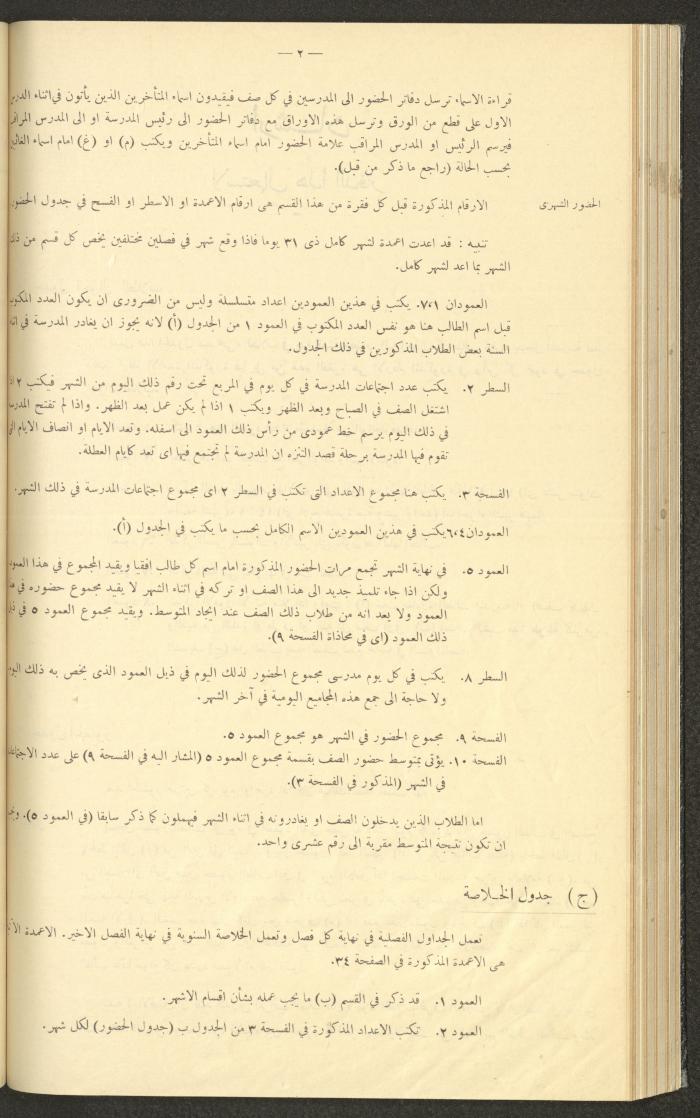 — ٢ —
قراءة الاسماء ترسل دفاتر الحضور الى المدرسين في كل صف فيقيدون اسماء المتأخرين الذين يأتون في اثناء الدرس
الاول على قطع من الورق وترسل هذه الاوراق مع دفاتر الحضور الى رئيس المدرسة او الى المدرس
فيرسم الرئيس او المدرس المراقب علامة الحضور امام اسماء المتأخرين ويكتب (م) او (غ) امام اسماء
بحسب الحالة (راجع ما ذكر من قبل).
الحضور الشهرى
الارقام المذكورة قبل كل فقرة من هذا القسم هى ارقام الاعمدة او الاسطر او الفسح في جدول الحضور
تنبيه : قد اعدت اعمدة لشهر كامل ذى ٣١ يوما فاذا وقع شهر في فصلين مختلفين يخص كل قسم من
الشهر بما اعد لشهر كامل.
العمودان ٧،١. يكتب في هذين العمودين اعداد متسلسلة وليس من الضرورى ان يكون العدد
قبل اسم الطالب هنا هو نفس العدد المكتوب في العمود ١ من الجدول (أ) لانه يجوز ان يغادر المدرسة في
السنة بعض الطلاب المذكورين في ذلك الجدول.
السطر ٢. يكتب عدد اجتماعات المدرسة في كل يوم في المربع تحت رقم ذلك اليوم من الشهر فيكتب ٢
اشتغل الصف في الصباح وبعد الظهر ويكتب ١ اذا لم يكن عمل بعد الظهر. واذا لم تفتح المدرسة
في ذلك اليوم يرسم خط عمودى من رأس ذلك العمود الى اسفله. وتعد الايام او انصاف الايام
تقوم فيها المدرسة برحلة قصد التنزه ان المدرسة لم تجتمع فيها اى تعد كايام العطلة.
الفسحة ٣. يكتب هنا مجموع الاعداد التى تكتب في السطر ٢ اى مجموع اجتماعات المدرسة في ذلك الشهر.
العمودان ٦،٤ يكتب في هذين العمودين الاسم الكامل بحسب ما يكتب في الجدول (أ).
العمود ٥. في نهاية الشهر تجمع مرات الحضور المذكورة امام اسم كل طالب افقيا ويقيد المجموع في هذا العمود
ولكن اذا جاء تلميذ جديد الى هذا الصف او تركه في اثناء الشهر لا يقيد مجموع حضوره في
العمود ولا يعد انه من طلاب ذلك الصف عند ايجاد المتوسط. ويقيد مجموع العمود ٥ في
ذلك العمود (اى في محاذاة الفسحة ٩).
السطر ٨. يكتب في كل يوم مدرسى مجموع الحضور لذلك اليوم في ذيل العمود الذى يخص به ذلك اليوم
ولا حاجة الى جمع هذه المجاميع اليومية في آخر الشهر.
الفسحة ٩. مجموع الحضور في الشهر هو مجموع العمود ٥.
الفسحة ١٠. يؤتى بمتوسط حضور الصف بقسمة مجموع العمود ٥ (المشار اليه في الفسحة ٩) على عدد
في الشهر (المذكور في الفسحة ٣).
اما الطلاب الذين يدخلون الصف او يغادرونه في اثناء الشهر فيهملون كما ذكر سابقا (في العمود ٥).
ان تكون نتيجة المتوسط مقربة الى رقم عشرى واحد.
(ج) جدول الخلاصة
تعمل الجداول الفصلية في نهاية كل فصل وتعمل الخلاصة السنوية في نهاية الفصل الاخير. الاعمدة
هى الاعمدة المذكورة في الصفحة ٣٤.
العمود ١. قد ذكر في القسم (ب) ما يجب عمله بشأن اقسام الاشهر.
العمود ٢. تكتب الاعداد المذكورة في الفسحة ٣ من الجدول ب (جدول الحضور) لكل شهر.